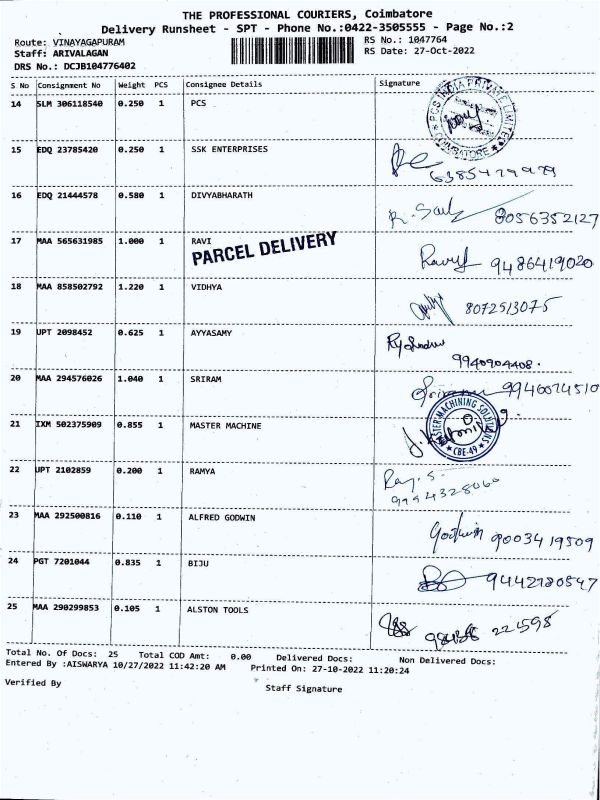 THE PROFESSIONAL COURIERS, Coimbatore
Delivery Runsheet - SPT - Phone No.:0422-3505555 - Page No.:2
Route: VINAYAGAPURAM
RS No.: 1047764
Staff: ARIVALAGAN
RS Date: 27-Oct-2022
DRS No.: DCJB104776402
S No Consignment No Weight PCS Consignee Details Signature
14 SLM 306118540 0.250 1 PCS
PCS INDIA PRIVATE LIMITED COIMBATORE
15 EDQ 23785420 0.250 1 SSK ENTERPRISES
6385479979
16 EDQ 21444578 0.580 1 DIVYABHARATH
8056352127
17 MAA 565631985 1.000 1 RAVI
PARCEL DELIVERY
9486419020
18 MAA 858502792 1.220 1 VIDHYA
8072513075
19 UPT 2098452 0.625 1 AYYASAMY
9940904408.
20 MAA 294576026 1.040 1 SRIRAM
9940074510
21 IXM 502375909 0.855 1 MASTER MACHINE
MASTER MACHINING SOLUTIONS CBE-49
22 UPT 2102859 0.200 1 RAMYA
9994328060
23 MAA 292500816 0.110 1 ALFRED GODWIN
Godwin 9003419509
24 PGT 7201044 0.835 1 BIJU
9442780547
25 MAA 290299853 0.105 1 ALSTON TOOLS
221598
Total No. Of Docs: 25 Total COD Amt: 0.00 Delivered Docs: Non Delivered Docs:
Entered By :AISWARYA 10/27/2022 11:42:20 AM Printed On: 27-10-2022 11:20:24
Verified By
Staff Signature